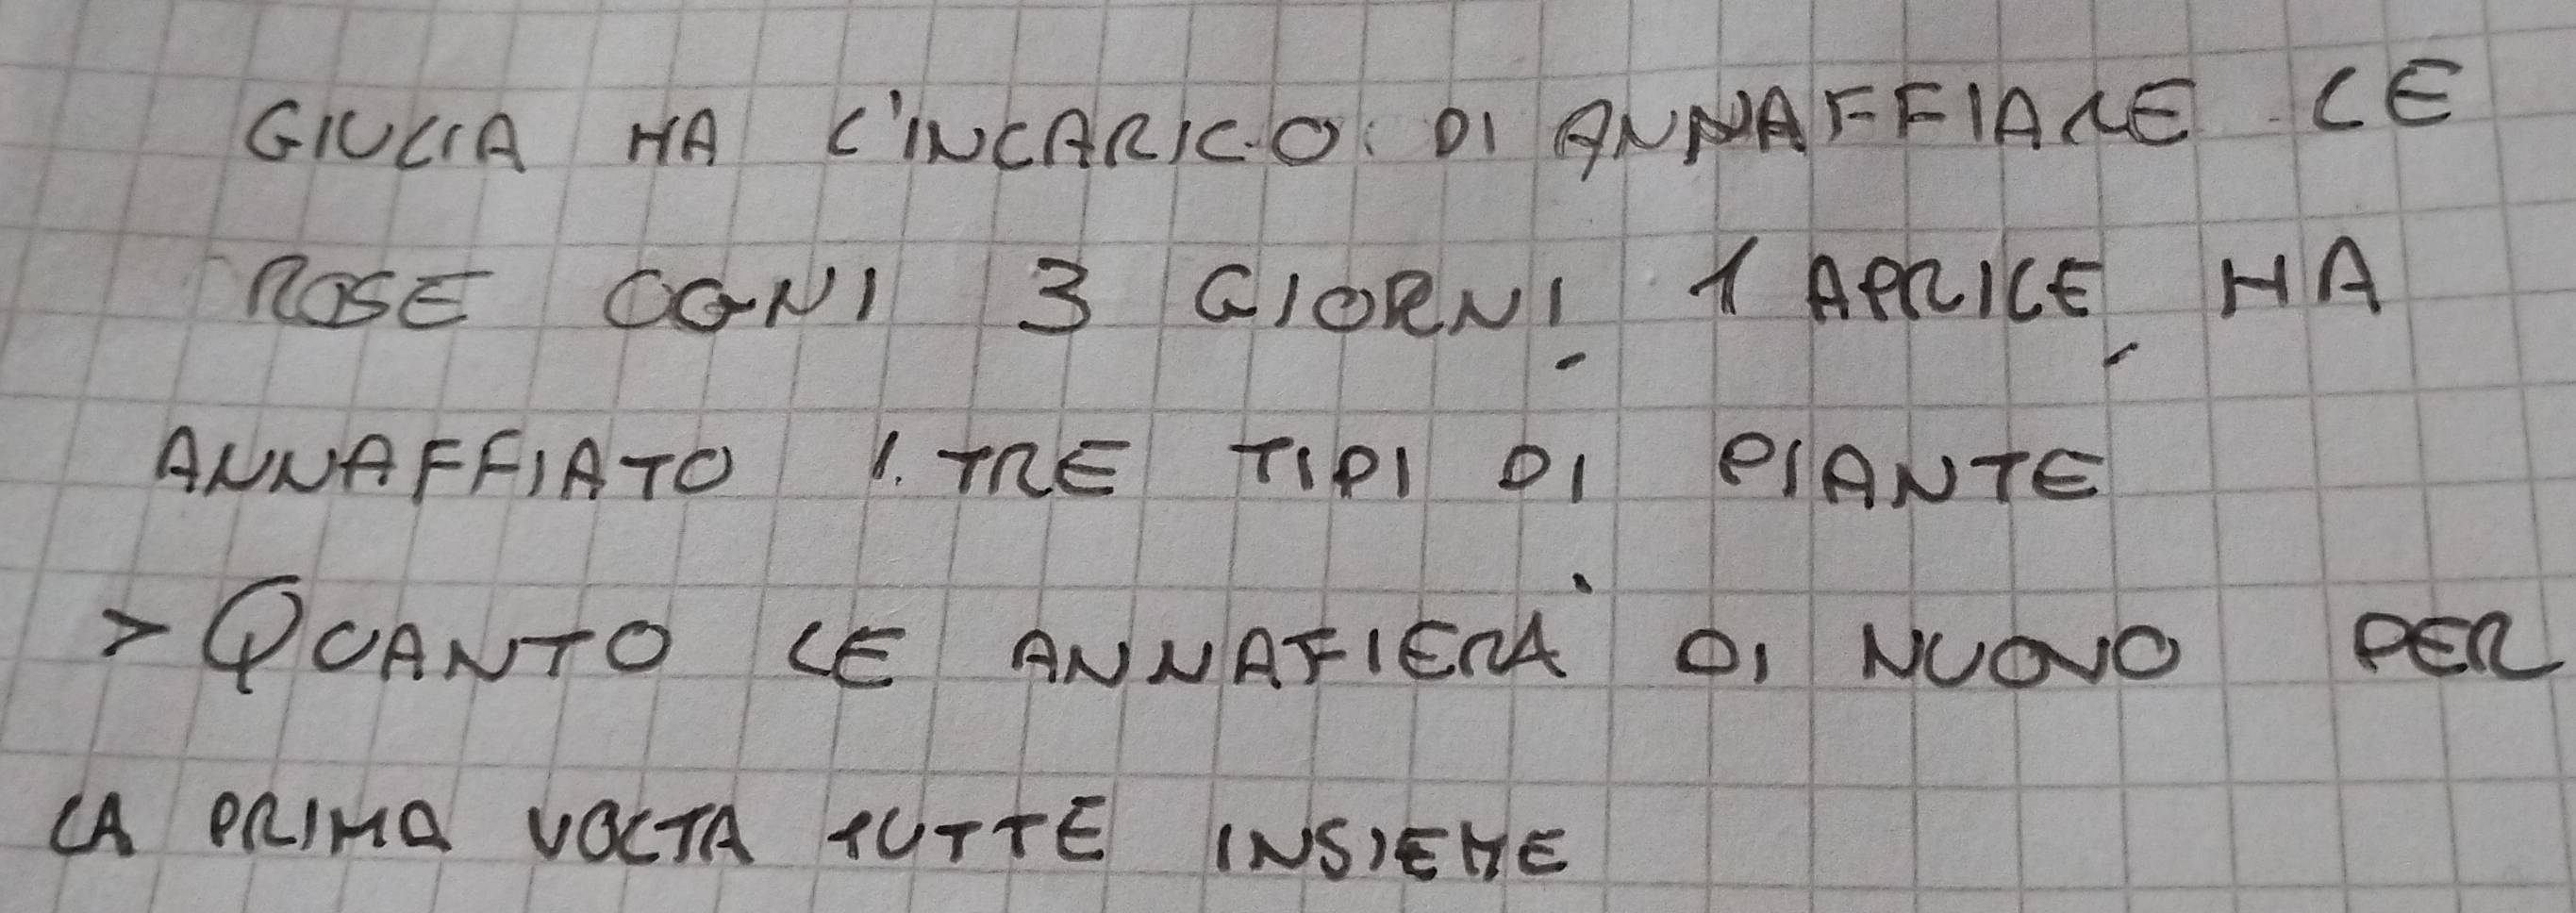 GIULIA HA L'INCARICO DI ANNAFFIARE LE
ROSE OGNI 3 GIORNI, 1 APRILE, HA
ANNAFFIATO I TRE TIPI DI PIANTE
> QUANTO LE ANNAFIERÀ DI NUOVO PER
LA PRIMA VOLTA TUTTE INSIEME